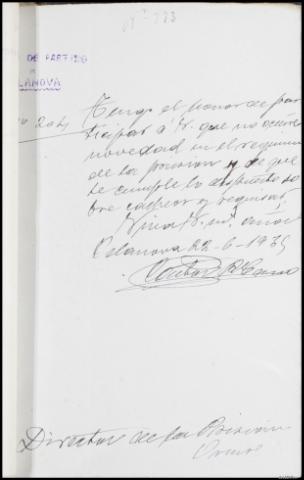 DE PARTIDO
LANOVA
204
Tengo el honor de par
ticipar a V. que no ocurre
novedad en el regimen
de la prision y de que
se cumple lo dispuesto so
bre cacheos y requisas
Viva V. m. años
Celanova 22-6-1935
Director de la Prision
Orense